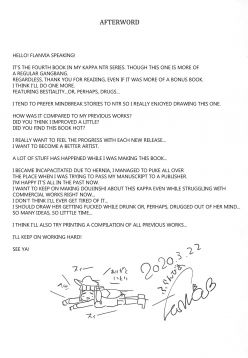 AFTERWORD
HELLO! FLANVIA SPEAKING!
IT'S THE FOURTH BOOK IN MY KAPPA NTR SERIES. THOUGH THIS ONE IS MORE OF
A REGULAR GANGBANG.
REGARDLESS, THANK YOU FOR READING, EVEN IF IT WAS MORE OF A BONUS BOOK.
I THINK I'LL DO ONE MORE.
FEATURING BESTIALITY...OR, PERHAPS, DRUGS...
I TEND TO PREFER MINDBREAK STORIES TO NTR SO I REALLY ENJOYED DRAWING THIS ONE.
HOW WAS IT COMPARED TO MY PREVIOUS WORKS?
DID YOU THINK I IMPROVED A LITTLE?
DID YOU FIND THIS BOOK HOT?
I REALLY WANT TO FEEL THE PROGRESS WITH EACH NEW RELEASE...
I WANT TO BECOME A BETTER ARTIST.
A LOT OF STUFF HAS HAPPENED WHILE I WAS MAKING THIS BOOK...
I BECAME INCAPACITATED DUE TO HERNIA, I MANAGED TO PUKE ALL OVER
THE PLACE WHEN I WAS TRYING TO PASS MY MANUSCRIPT TO A PUBLISHER.
I'M HAPPY IT'S ALL IN THE PAST NOW.
I WANT TO KEEP ON MAKING DOUJINSHI ABOUT THIS KAPPA EVEN WHILE STRUGGLING WITH
COMMERCIAL WORKS RIGHT NOW...
I DON'T THINK I'LL EVER GET TIRED OF IT...
I SHOULD DRAW HER GETTING FUCKED WHILE DRUNK OR, PERHAPS, DRUGGED OUT OF HER MIND...
SO MANY IDEAS, SO LITTLE TIME...
I THINK I'LL ALSO TRY PRINTING A COMPILATION OF ALL PREVIOUS WORKS..
I'LL KEEP ON WORKING HARD!
SEE YA!
2020.3.22
ありがと
スィー
スィー